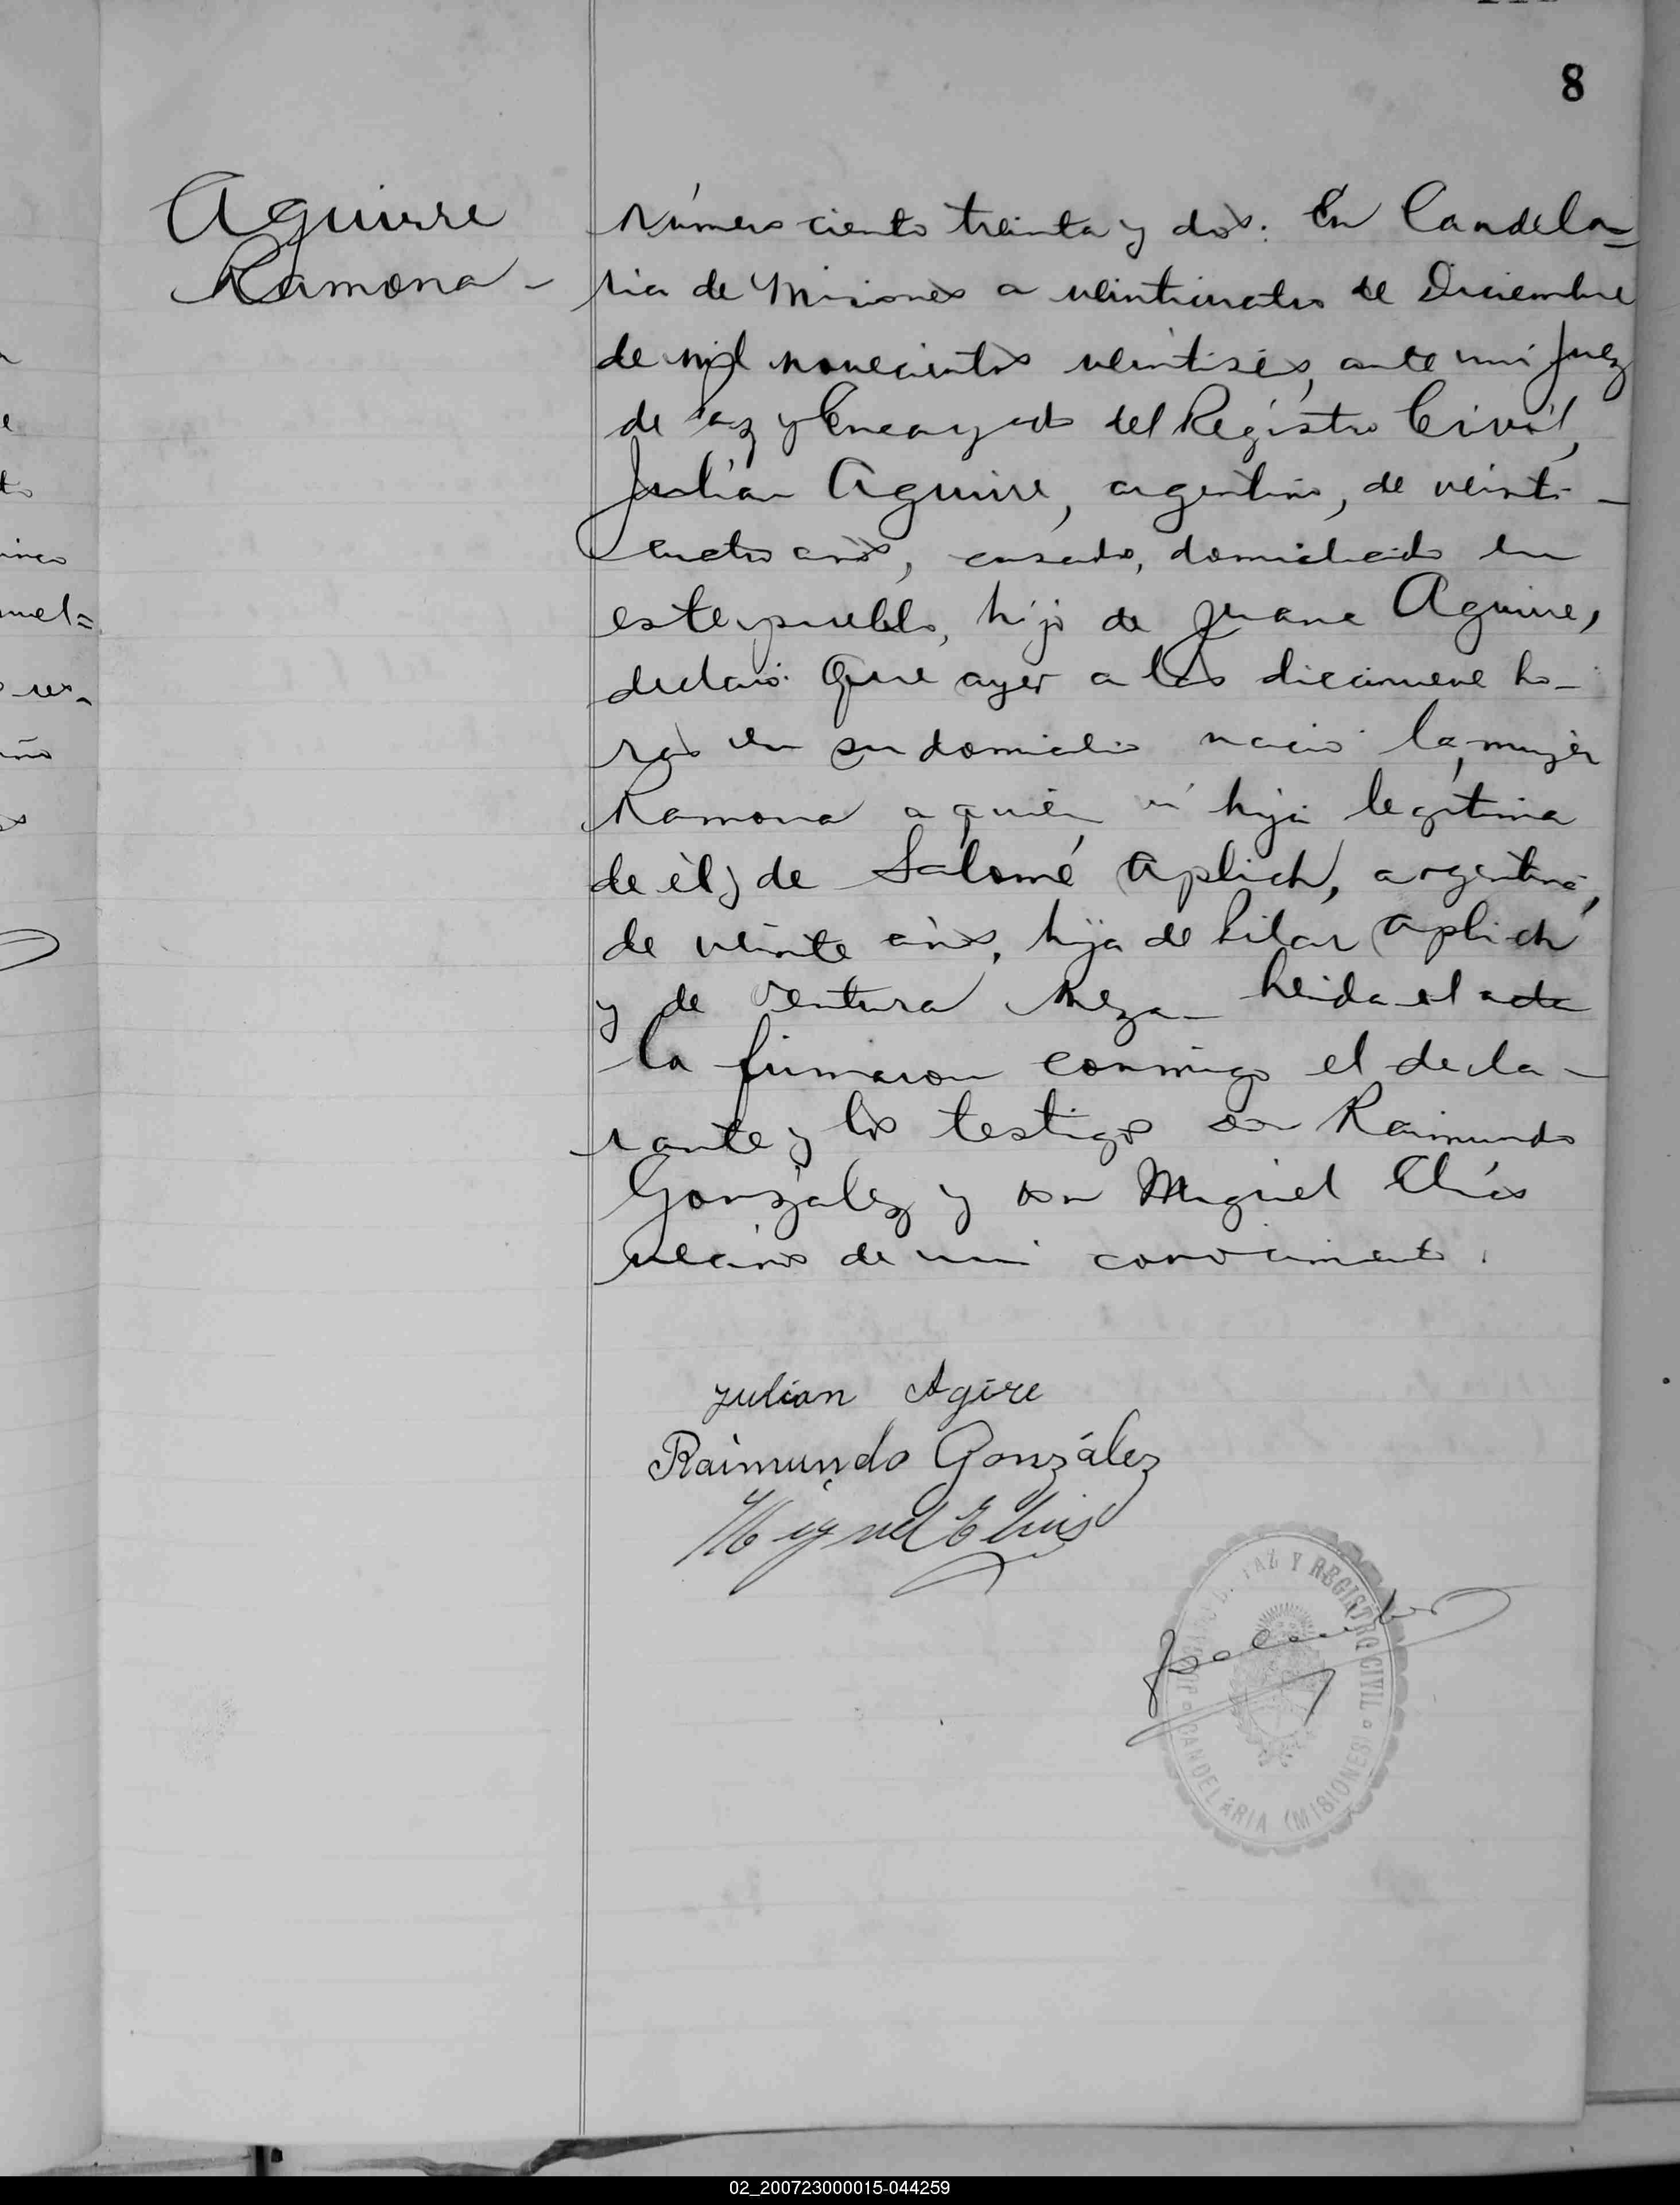 8
Aguirre
Ramona -
Número ciento treinta y dos: En Candela=
ria de Misiones a veinticuatro de Diciembre
de mil novecientos veintiséis, ante mi Juez
de Paz y Encargado del Registro Civil,
Julián Aguirre, argentino, de veinti-
cuatro años, casado, domiciliado en
este pueblo, hijo de Juana Aguirre,
declaró: Que ayer a las diecinueve ho-
ras en su domicilio nació la mujer
Ramona a quien ví hija legítima
de él y de Salomé Aplich, argentina,
de veinte años, hija de Pilar Aplich
y de Ventura Meza - Leida el acta
la firmaron conmigo el decla-
rante y los testigos don Raimundo
González y don Miguel Elías
vecinos de mi conocimiento.
Julian Agire
Raimundo González
Miguel Elias
JUZGADO DE PAZ Y REGISTRO CIVIL
CANDELARIA (MISIONES)
02_200723000015-044259